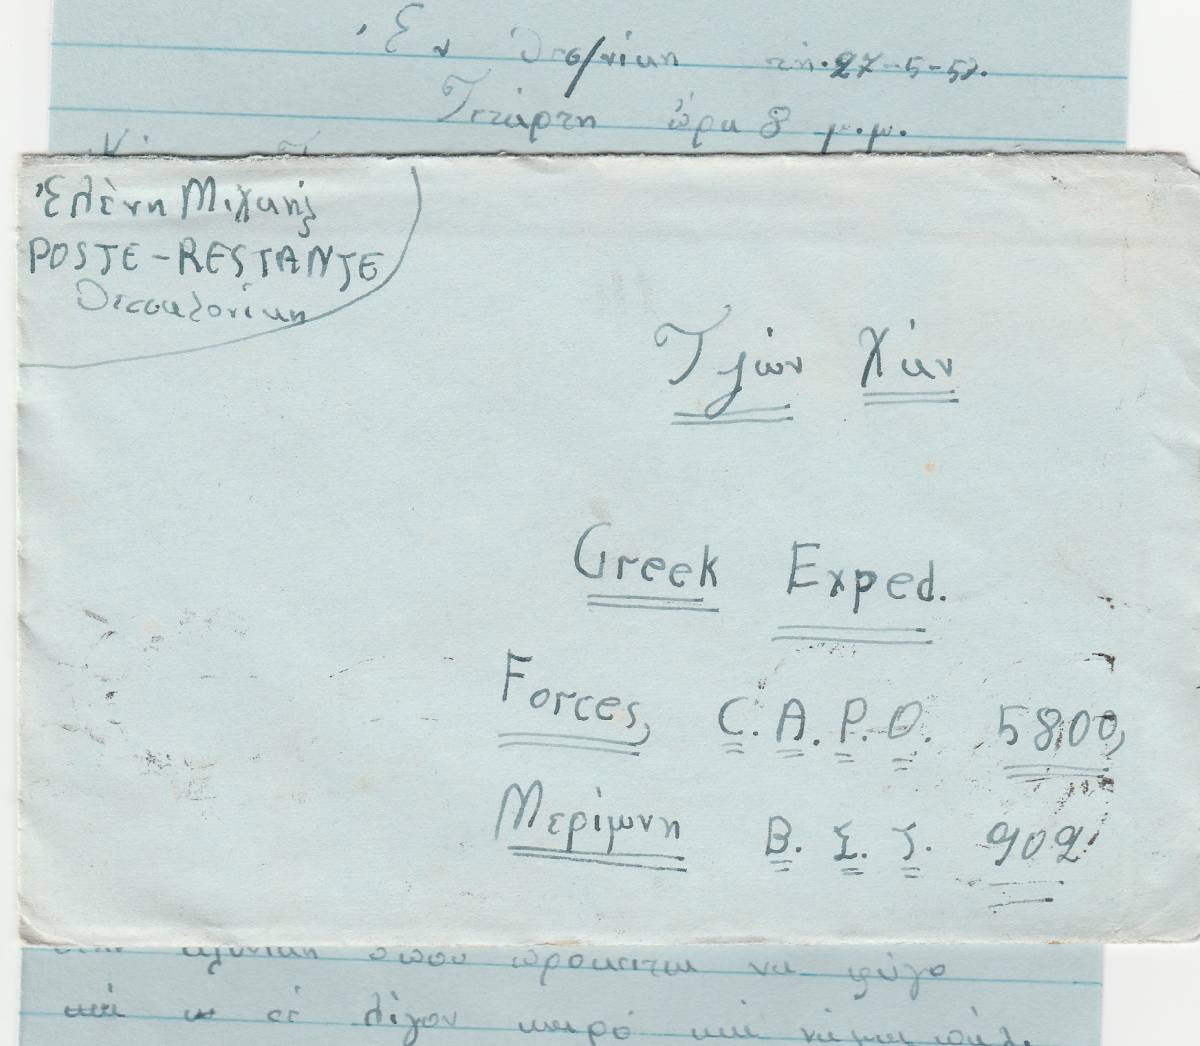 Ἐν Θεσ/νίκη τῆ 27-5-53.
Τετάρτη ὥρα 8 μ.μ.
Ἑλένη Μιχαηλ
POSTE-RESTANTE
Θεσσαλονίκη
Τζών Χάν
Greek Exped.
Forces, C.A.P.O. 5800,
Μερίμνη Β.Σ.Τ. 902
ὅπου πρόκειται νά φύγο
καί σέ λίγον καιρό καί νά